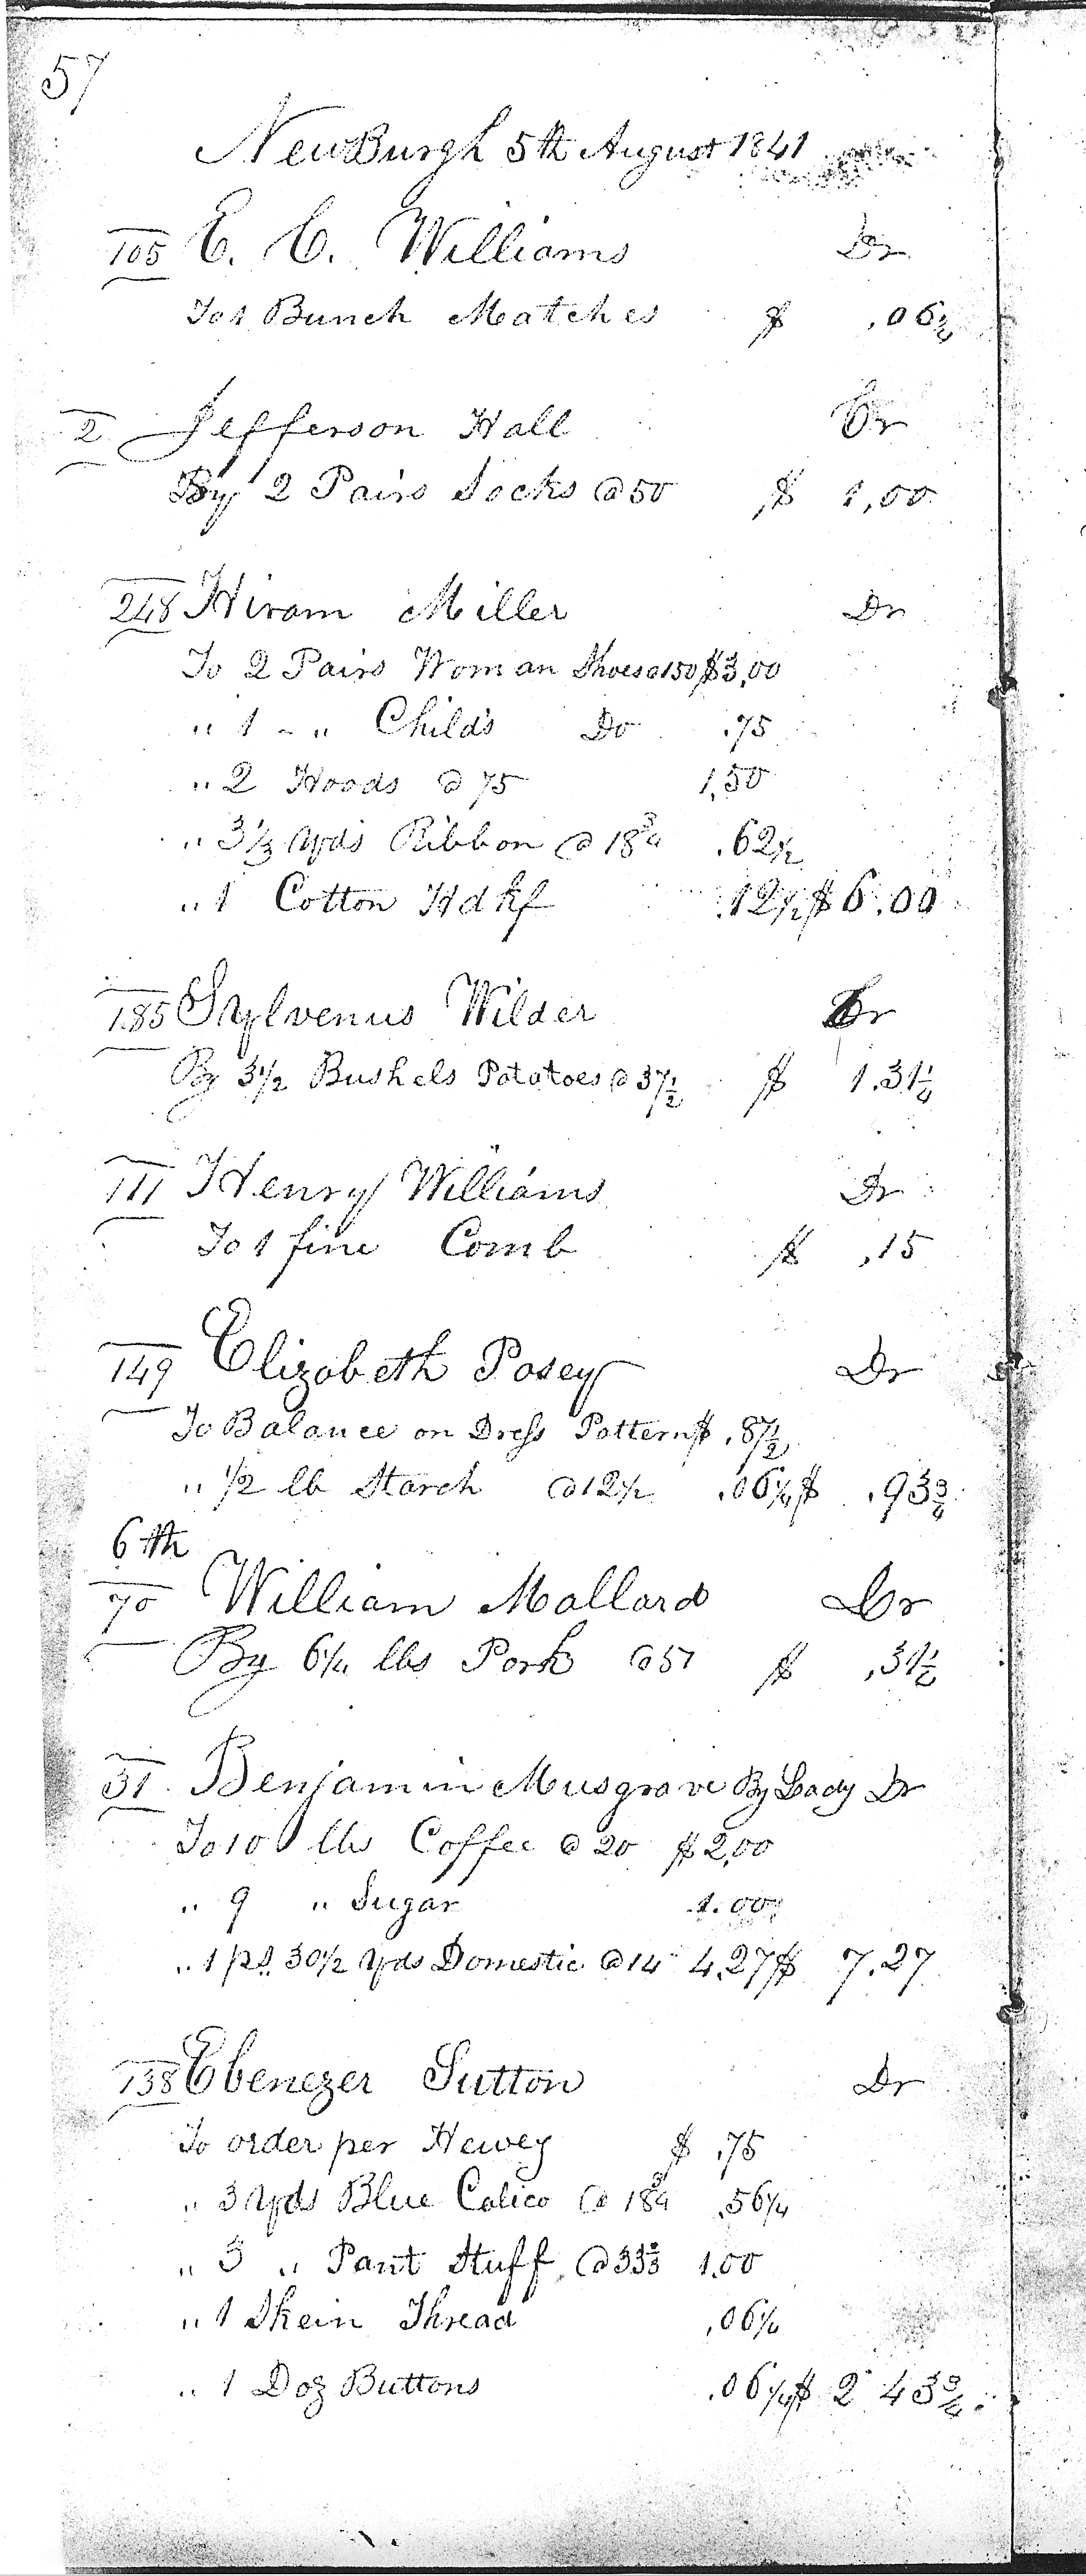 57
NewBurgh 5th August 1841
105 E. C. Williams Dr
To 1 Bunch Matches $ .06¼
2 Jefferson Hall Cr
By 2 Pairs Socks @ 50 $ 1,00
248 Hiram Miller Dr
To 2 Pairs Woman Shoes @ 150 $3,00
" 1 - " Childs Do .75
" 2 Hoods @ 75 1,50
" 3⅓ yds Ribbon @ 18¾ .62½
" 1 Cotton Hdkf .12½ $ 6.00
185 Sylvenus Wilder Cr
By 3½ Bushels Potatoes @ 37½ $ 1.31¼
111 Henry Williams Dr
To 1 fine Comb $ .15
149 Elizabeth Posey Dr
To Balance on Dress Pattern $ .87½
" ½ lb Starch @ 12½ .06¼ $ .93¾
6th
70 William Mallard Cr
By 6¼ lbs Pork @ 5 $ ,31½
31 Benjamin Musgrove By Lady Dr
To 10 lbs Coffee @ 20 $ 2,00
" 9 " Sugar 1.00
" 1 ps. 30½ yds Domestic @ 14 4.27 $ 7.27
138 Ebenezer Sutton Dr
To order per Hewey $ .75
" 3 yds Blue Calico @ 18¾ .56¼
" 3 " Pant Stuff @ 33⅓ 1.00
" 1 Skein Thread ,06¼
" 1 Doz Buttons .06¼ $ 2 43¾